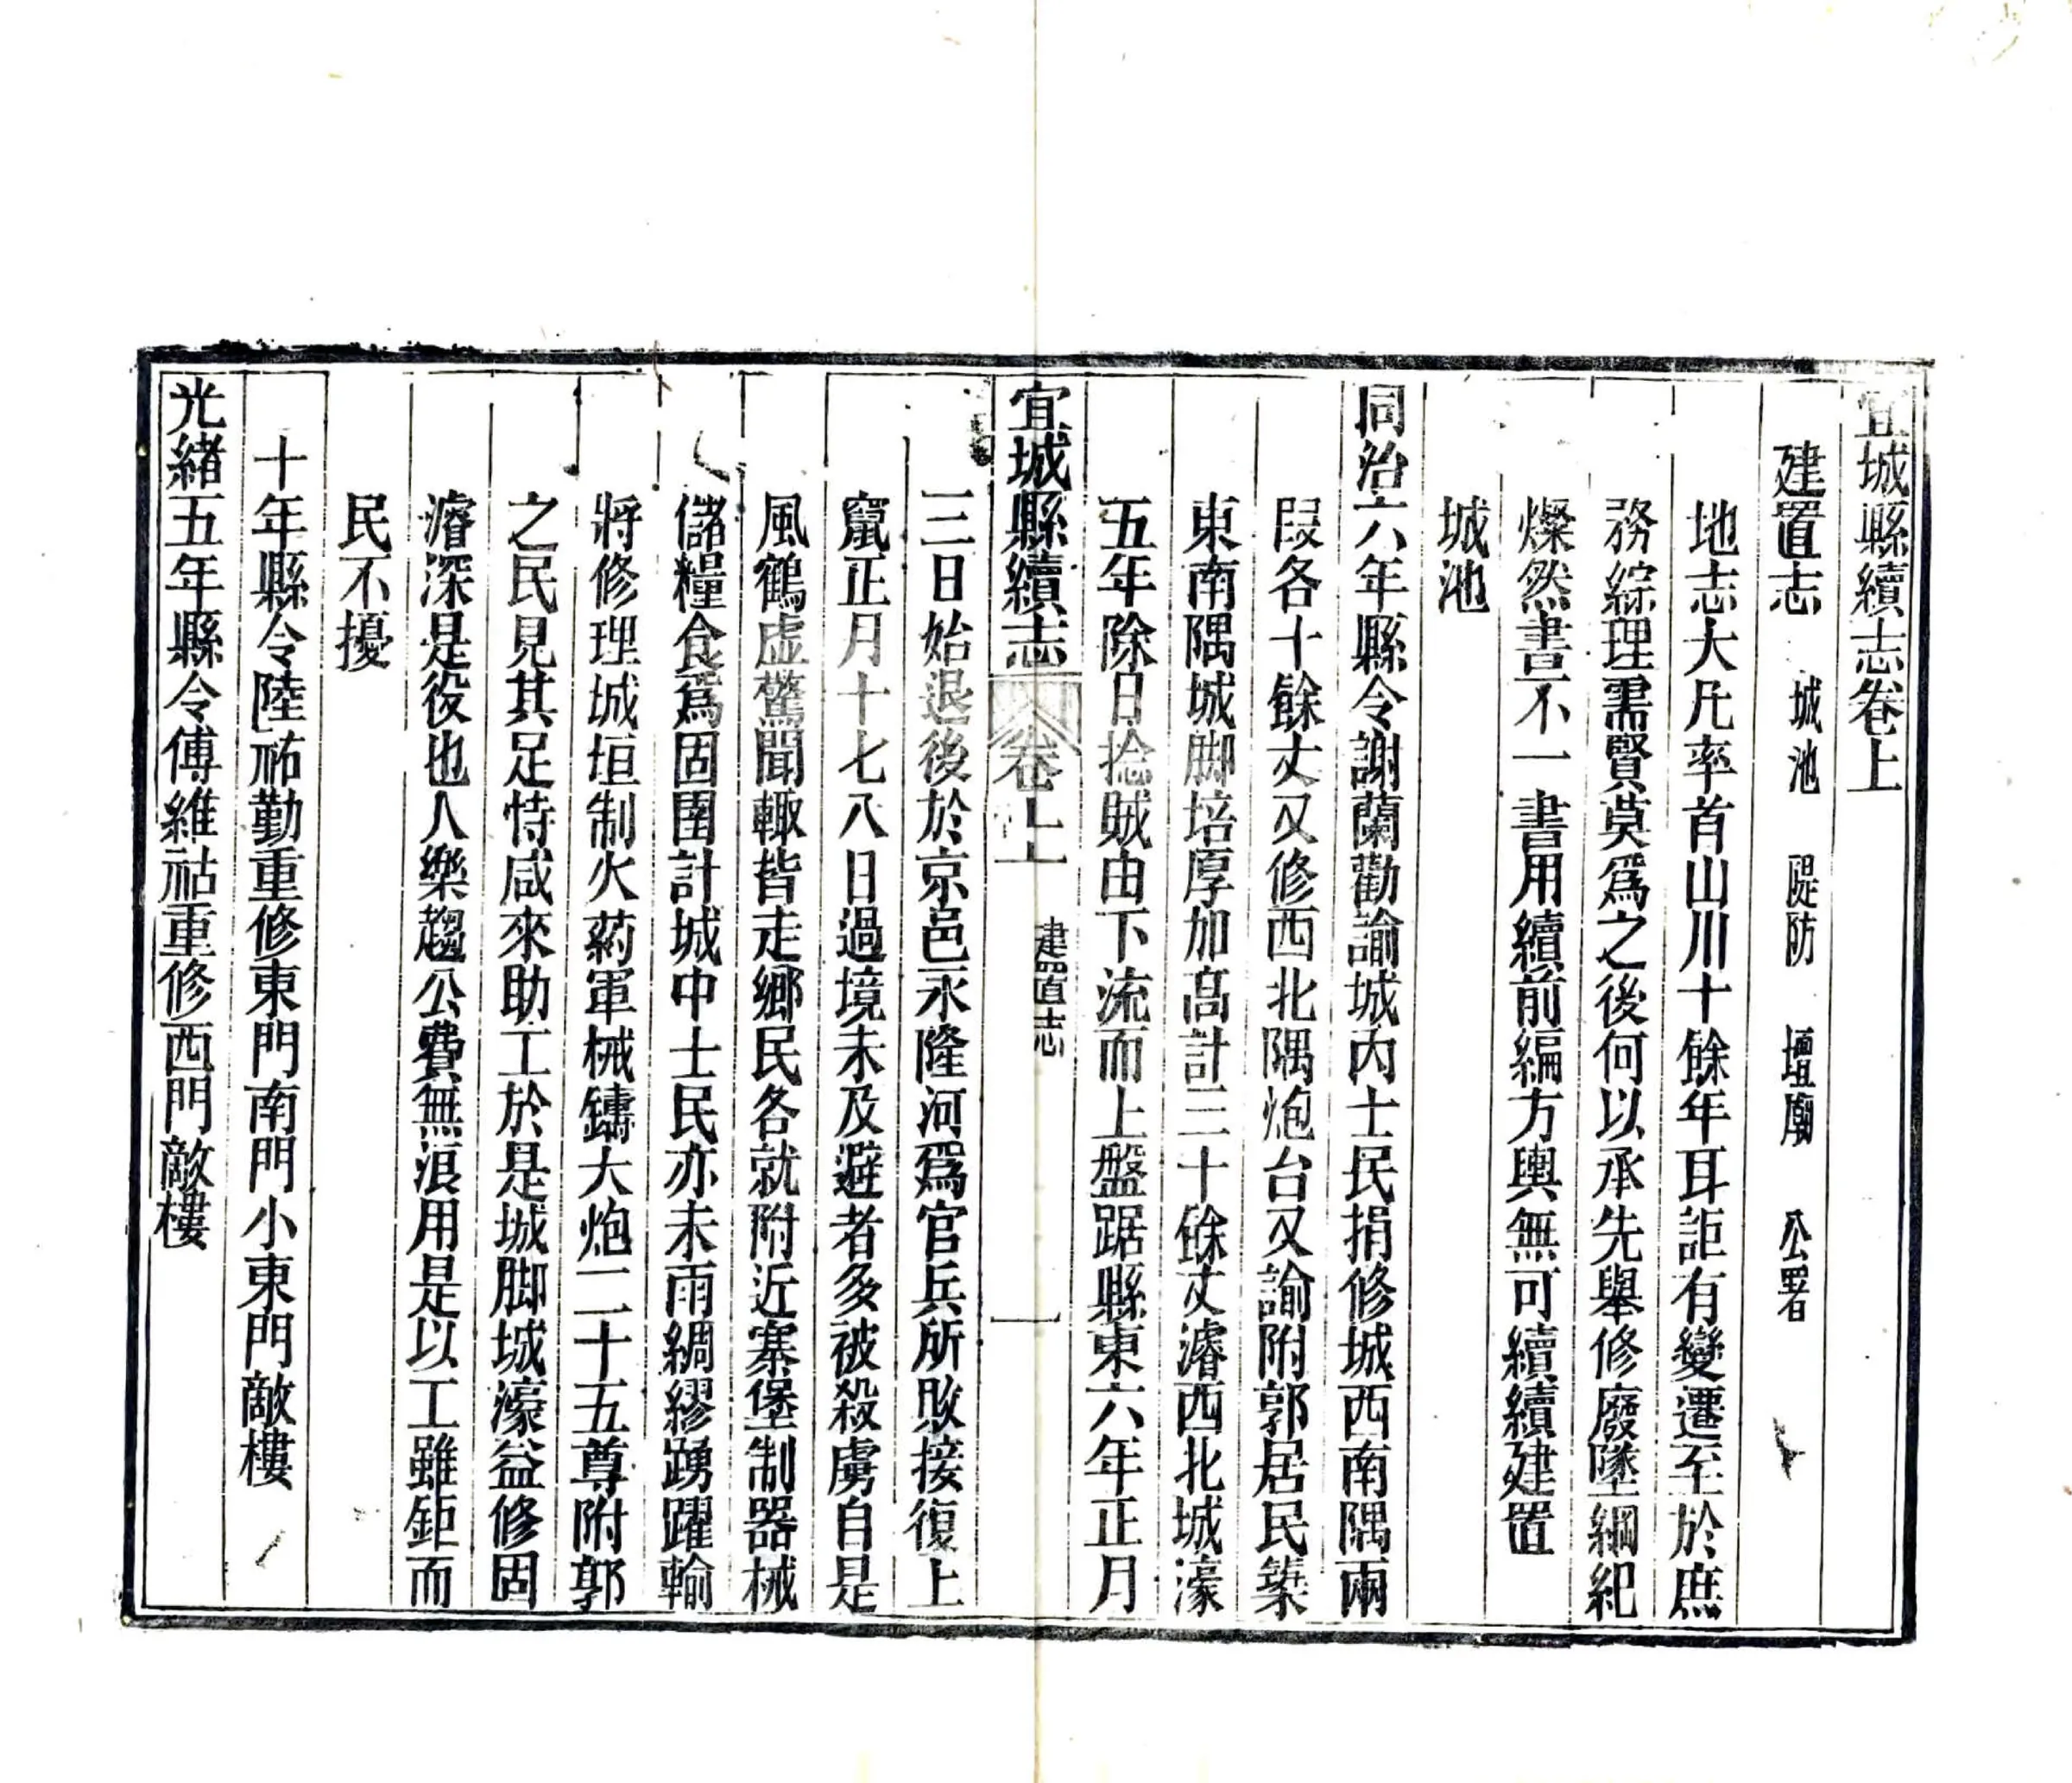 宜城縣續志卷上
建置志 城池 隄防 壇廟 公署
地志大凡率首山川十餘年耳詎有變遷至於庶
務綜理需賢莫爲之後何以承先舉修廢墜綱紀
燦然書不一書用續前編方輿無可續續建置
城池
同治六年縣令謝蘭勸諭城內士民捐修城西南隅兩
段各十餘丈又修西北隅炮台又諭附郭居民築
東南隅城脚培厚加高計三十餘丈濬西北城濠
五年除日捻賊由下流而上盤踞縣東六年正月
宜城縣續志 卷上 建置志 一
三日始退後於京邑永隆河爲官兵所敗接復上
竄正月十七八日過境未及避者多被殺虜自是
風鶴虛驚聞輙皆走鄉民各就附近寨堡制器械
儲糧食爲固圉計城中士民亦未雨綢繆踴躍輸
將修理城垣制火葯軍械鑄大炮二十五尊附郭
之民見其足恃咸來助工於是城脚城濠益修固
濬深是役也人樂趨公費無浪用是以工雖鉅而
民不擾
十年縣令陸祐勤重修東門南門小東門敵樓
光緒五年縣令傅維祜重修西門敵樓